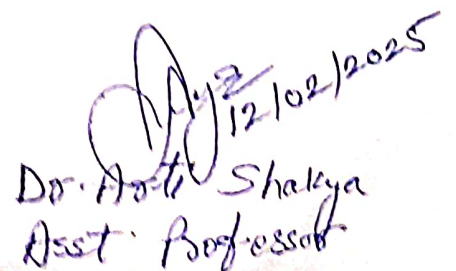 12/02/2025
Dr. Arti Shakya
Asst. Professor